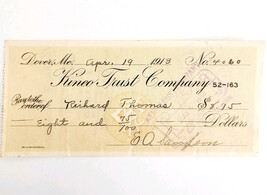 Dover, Me. Apr. 19 1913 No. 4060
Kineo Trust Company 52-163
Pay to the order of Richard Thomas $8.95
Eight and 95/100 Dollars